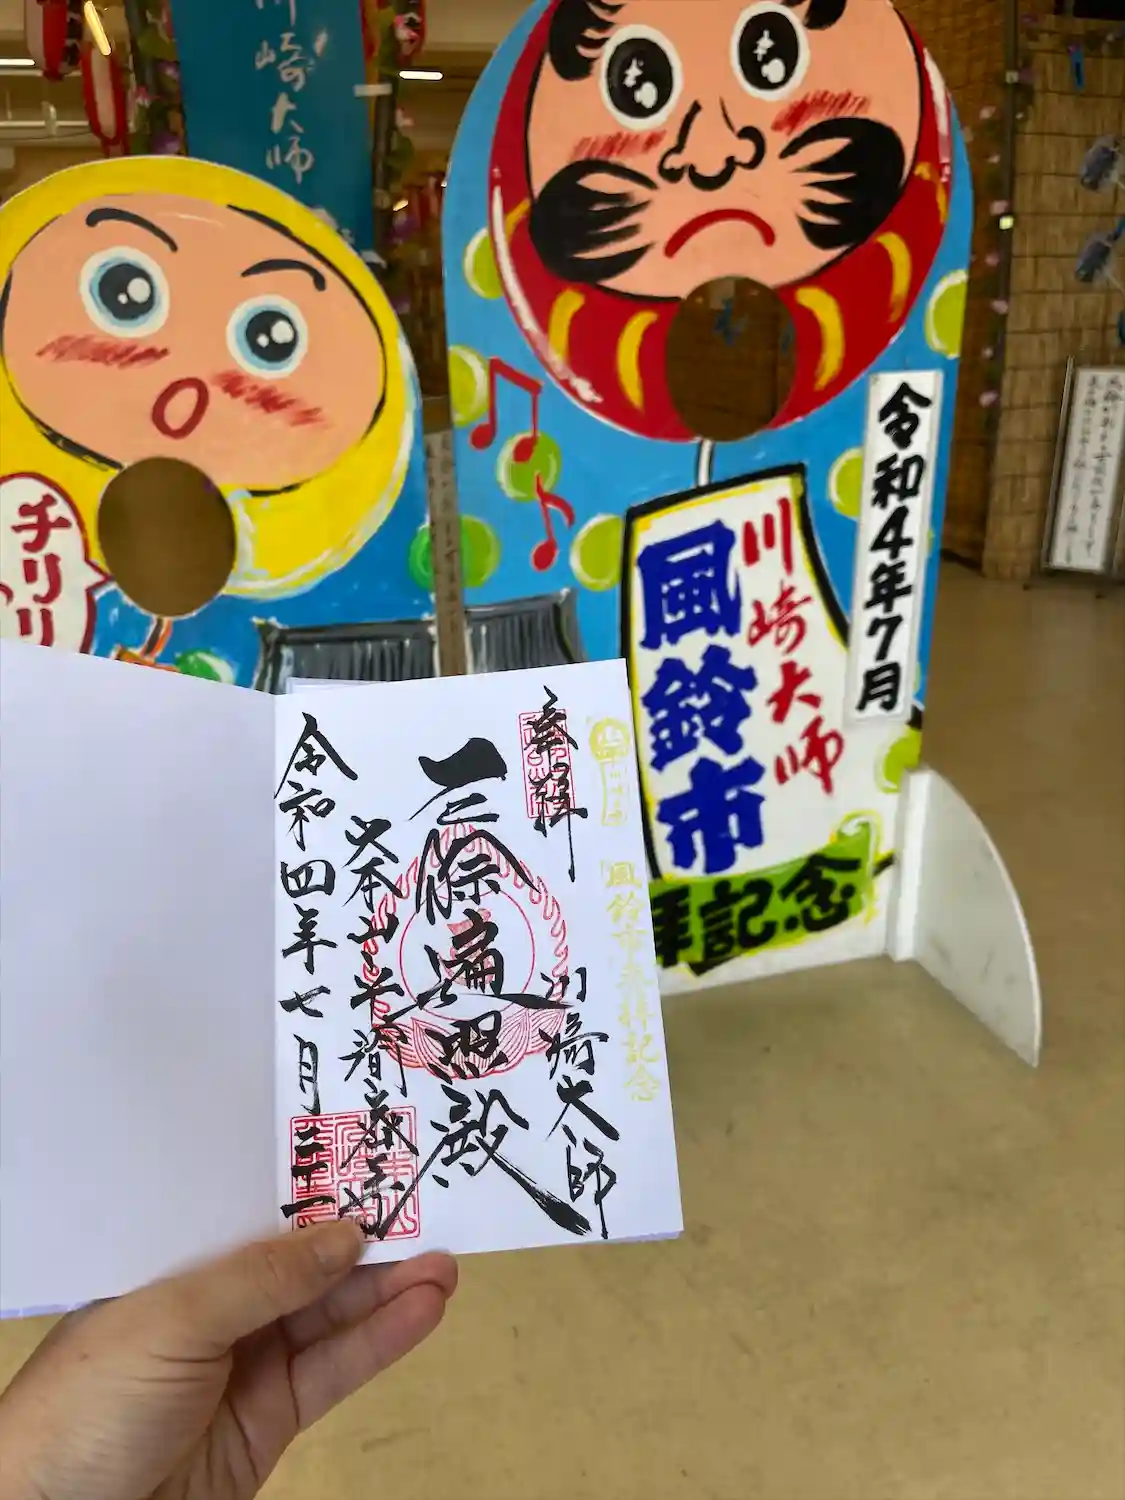 川崎大師
チリリ
令和4年7月
川崎大師
風鈴市
拝記念
風鈴市来拝記念
奉拝
川崎大師
遍照殿
大本山平間寺
令和四年七月三十一